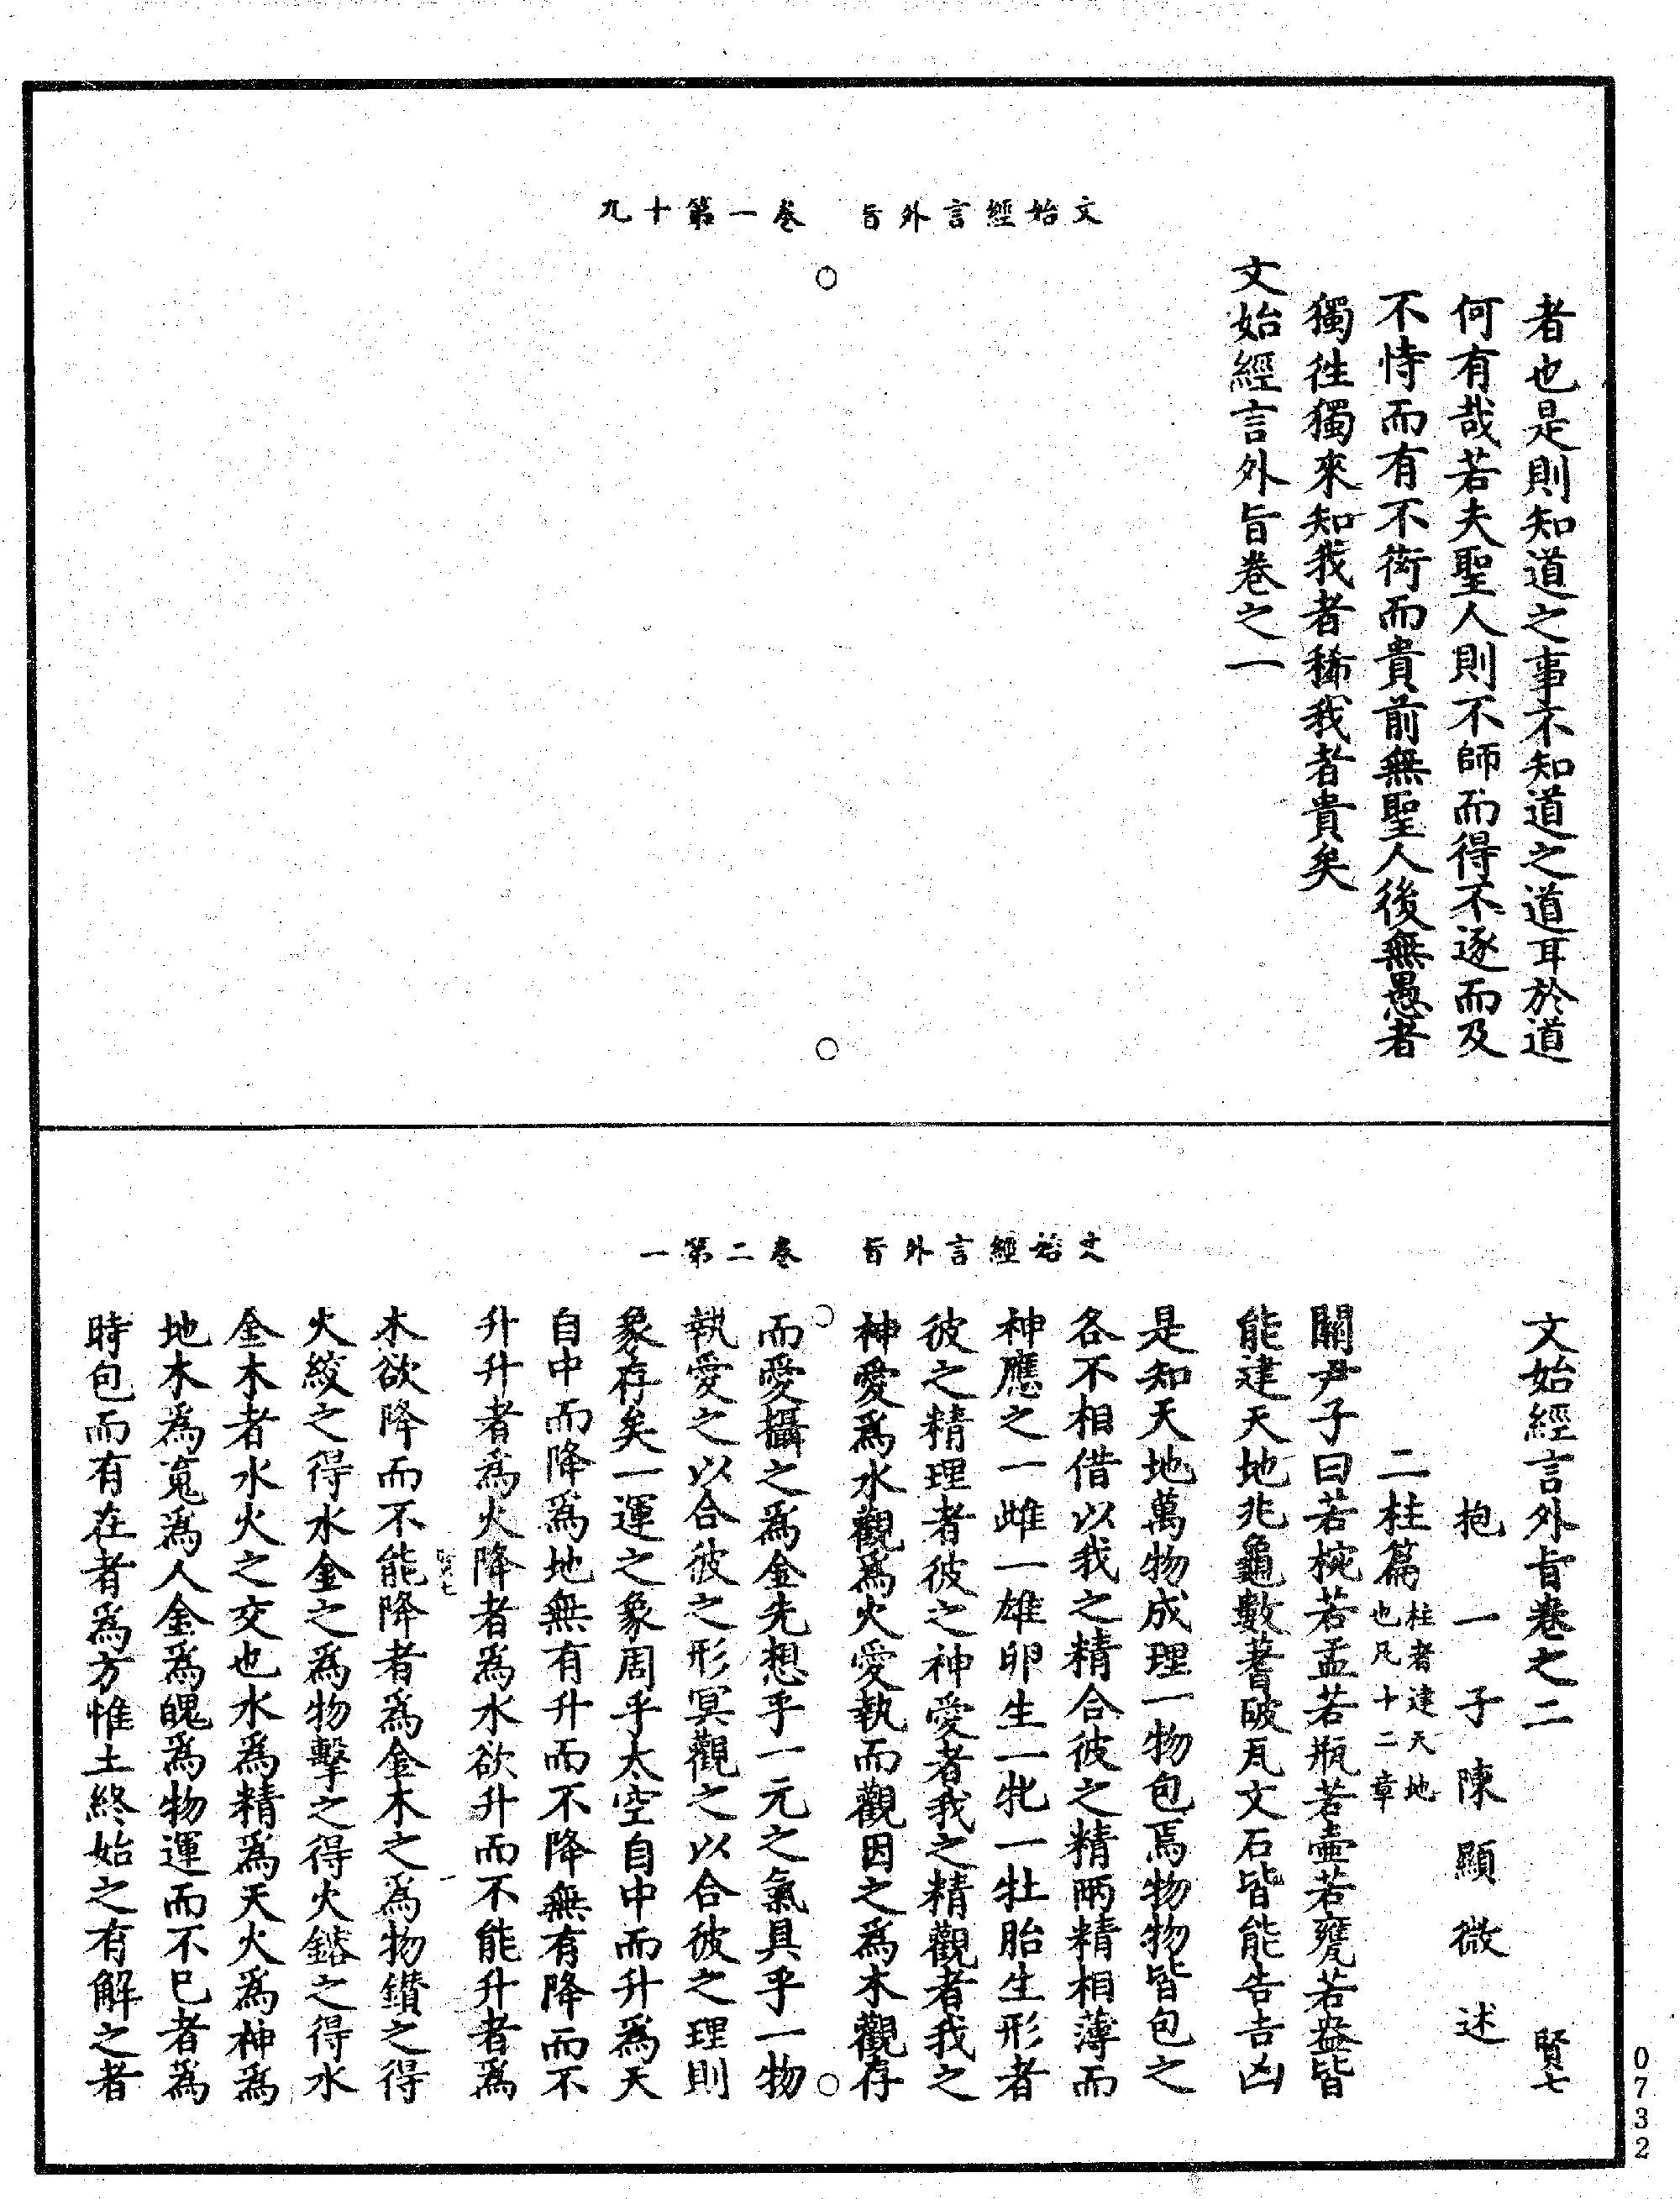 文始經言外旨　卷一第十九
者也是則知道之事不知道之道耳於道
何有哉若夫聖人則不師而得不逐而及
不恃而有不衒而貴前無聖人後無愚者
獨往獨來知我者稀我者貴矣
文始經言外旨卷之一
文始經言外旨　卷二第一
文始經言外旨卷之二　賢七
抱一子陳顯微述
二柱篇柱者建天地也凡十二章
關尹子曰若椀若盂若瓶若壺若甕若盎皆
能建天地兆龜數蓍破瓦文石皆能告吉凶
是知天地萬物成理一物包焉物物皆包之
各不相借以我之精合彼之精兩精相薄而
神應之一雌一雄卵生一牝一牡胎生形者
彼之精理者彼之神愛者我之精觀者我之
神愛為水觀為火愛執而觀因之為木觀存
而愛攝之為金先想乎一元之氣具乎一物
執愛之以合彼之形冥觀之以合彼之理則
象存矣一運之象周乎太空自中而升為天
自中而降為地無有升而不降無有降而不
升升者為火降者為水欲升而不能升者為
木欲降而不能降者為金木之為物鑽之得
火絞之得水金之為物擊之得火鎔之得水
金木者水火之交也水為精為天火為神為
地木為䰟為人金為魄為物運而不已者為
時包而有在者為方惟土終始之有解之者
0732